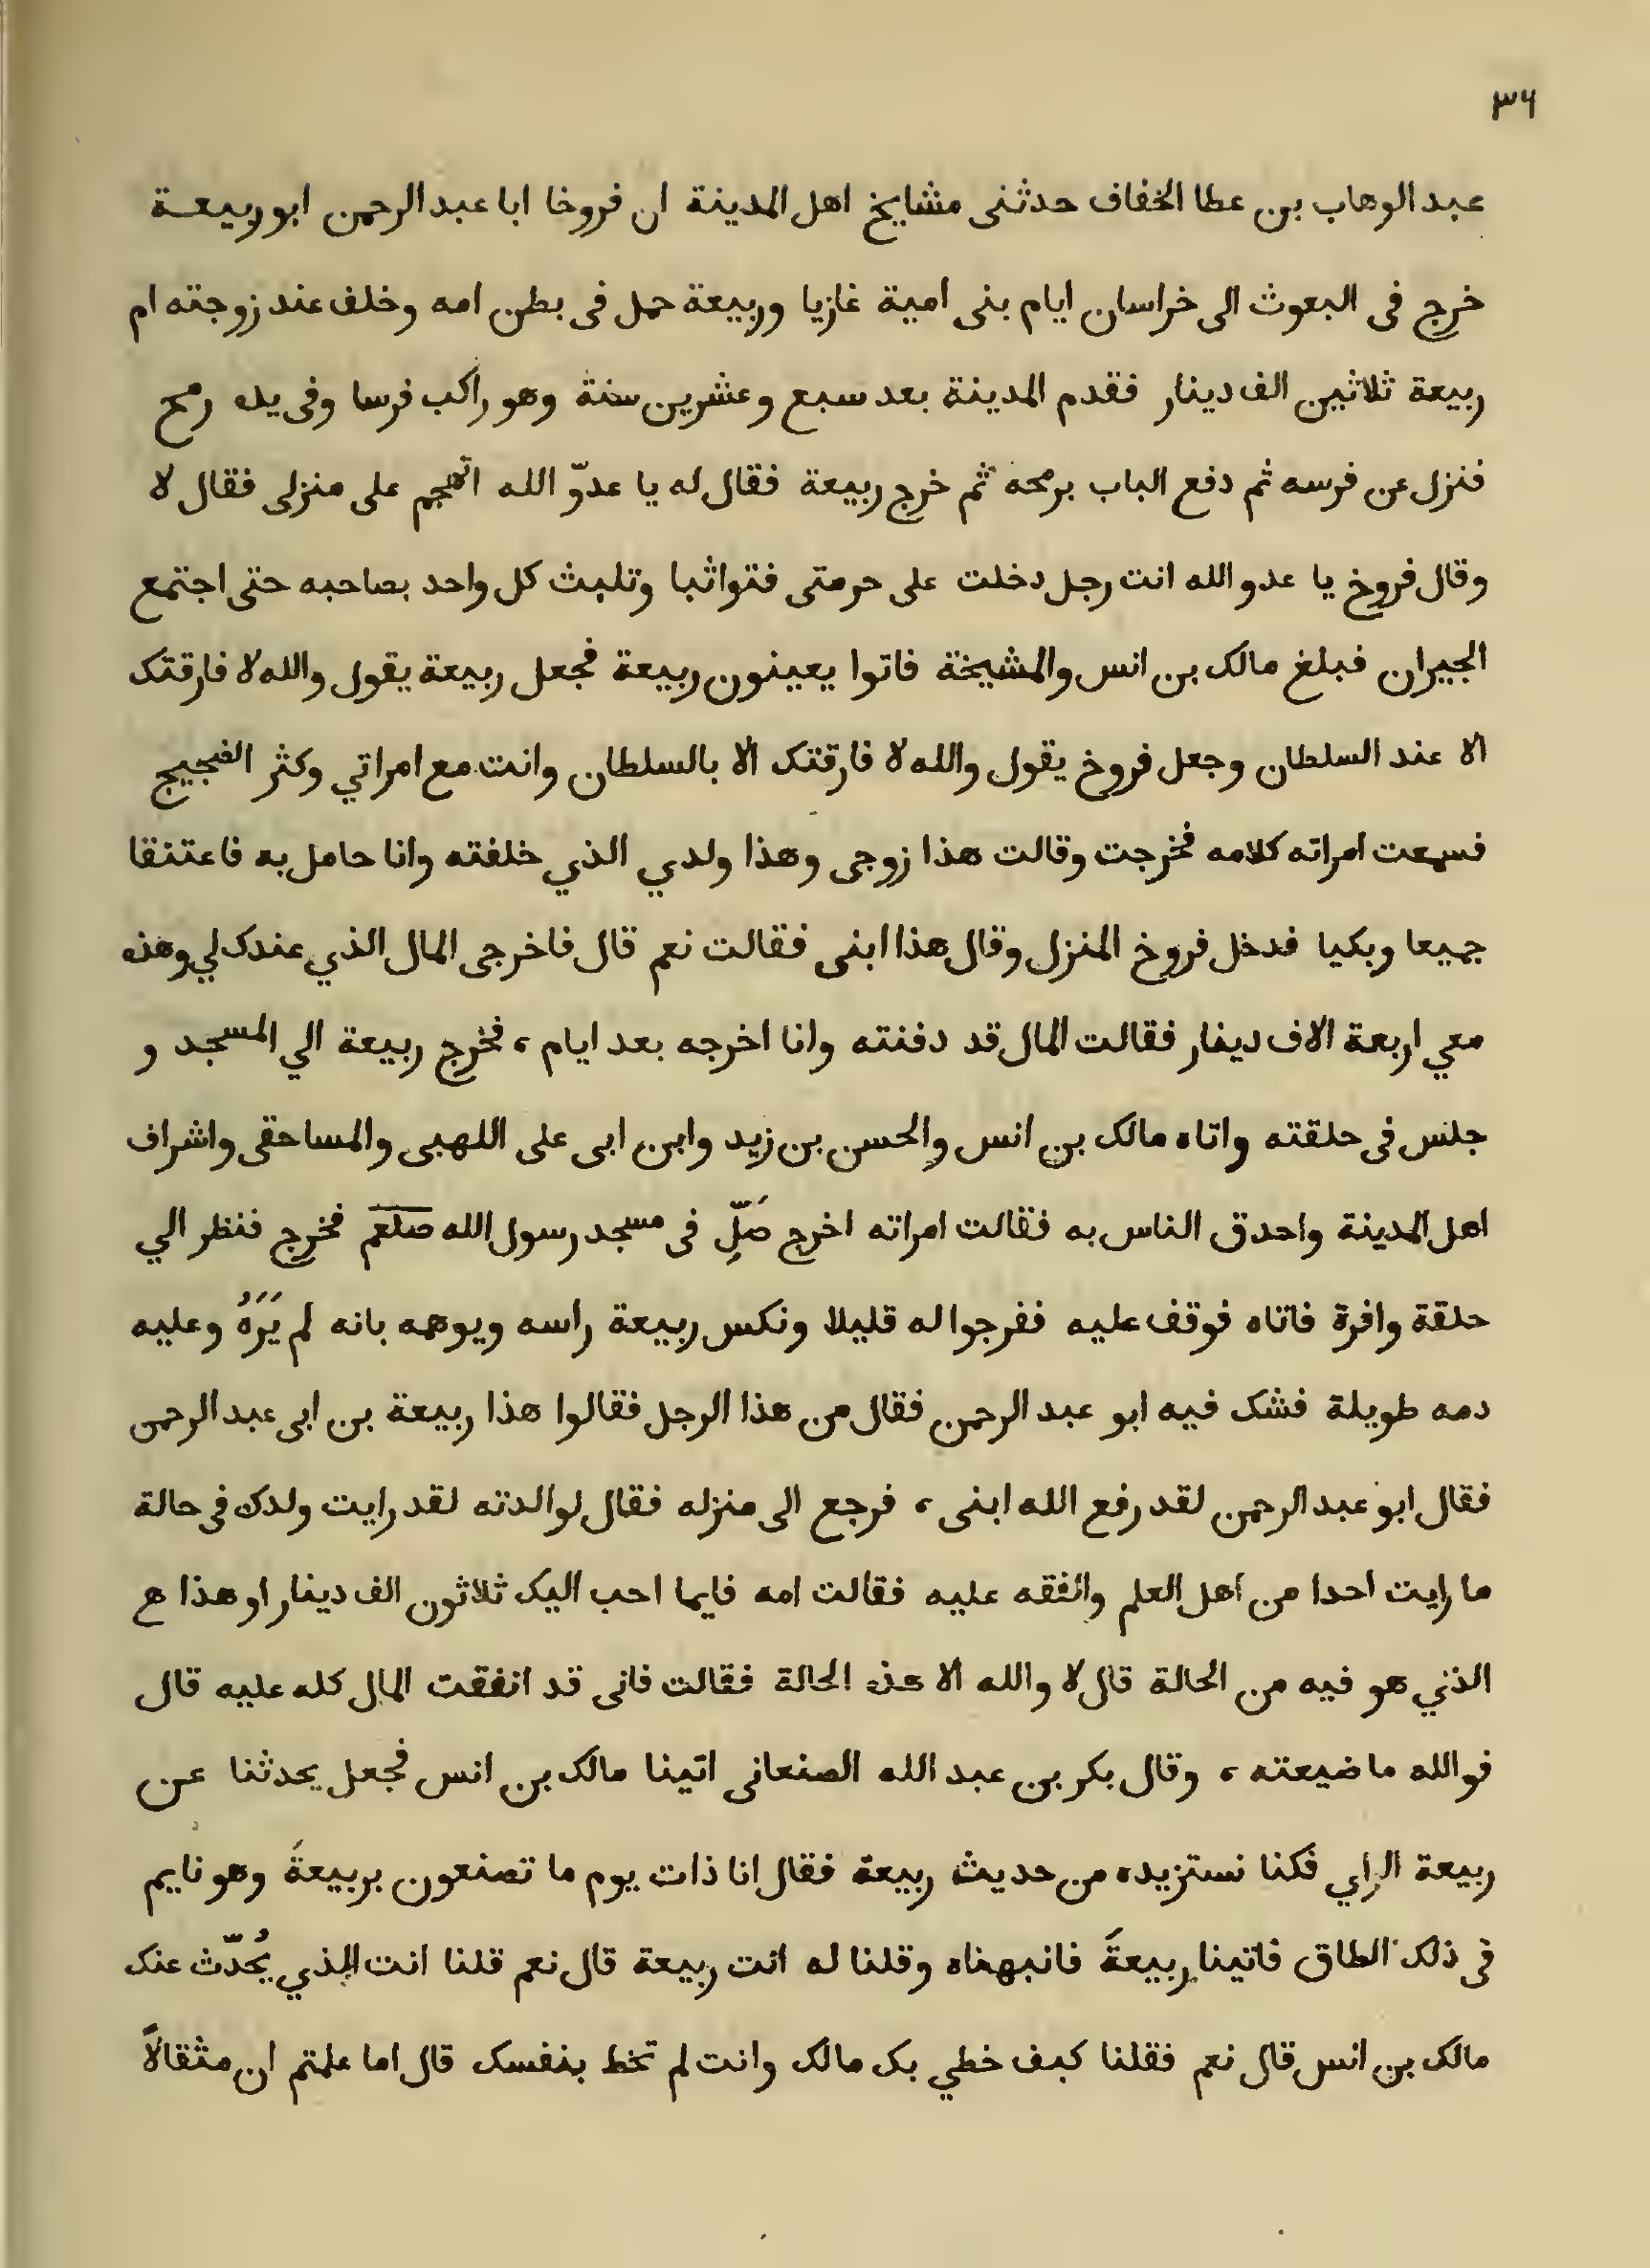 ٣٦
عبد الوهاب بن عطا الخفاف حدثنى مشايخ اهل المدينة ان فروخا ابا عبد الرحمن ابو ربيعة
خرج فى البعوث الى خراسان ايام بنى امية غازيا وربيعة حمل فى بطن امه وخلف عند زوجته ام
ربيعة ثلاثين الف دينار فقدم المدينة بعد سبع وعشرين سنة وهو راكب فرسا وفى يده رمح
فنزل عن فرسه ثم دفع الباب برمحه ثم خرج ربيعة فقال له يا عدوّ الله اتهجم على منزلى فقال لا
وقال فروخ يا عدو الله انت رجل دخلت على حرمتى فتواثبا وتلبث كل واحد بصاحبه حتى اجتمع
الجيران فبلغ مالك بن انس والمشيخة فاتوا يعينون ربيعة فجعل ربيعة يقول والله لا فارقتك
الا عند السلطان وجعل فروخ يقول والله لا فارقتك الا بالسلطان وانت مع امراتي وكثر الضجيج
فسمعت امراته كلامه فخرجت وقالت هذا زوجى وهذا ولدي الذي خلفته وانا حامل به فاعتنقا
جميعا وبكيا فدخل فروخ المنزل وقال هذا ابنى فقالت نعم قال فاخرجى المال الذي عندك لي وهذه
معي اربعة الاف دينار فقالت المال قد دفنته وانا اخرجه بعد ايام ، فخرج ربيعة الي المسجد و
جلس فى حلقته واتاه مالك بن انس والحسن بن زيد وابن ابى على اللهبى والمساحقى واشراف
اهل المدينة واحدق الناس به فقالت امراته اخرج صَلِّ فى مسجد رسول الله صلعم فخرج فنظر الي
حلقة وافرة فاتاه فوقف عليه ففرجوا له قليلا ونكس ربيعة راسه ويوهمه بانه لم يَرَهُ وعليه
دمه طويلة فشك فيه ابو عبد الرحمن فقال من هذا الرجل فقالوا هذا ربيعة بن ابى عبد الرحمن
فقال ابو عبد الرحمن لقد رفع الله ابنى ، فرجع الى منزله فقال لوالدته لقد رايت ولدك فى حالة
ما رايت احدا من اهل العلم والفقه عليه فقالت امه فايما احب اليك ثلاثون الف دينار او هذا ع
الذي هو فيه من الحالة قال لا والله الا هذه الحالة فقالت فانى قد انفقت المال كله عليه قال
فوالله ما ضيعته ، وقال بكر بن عبد الله الصنعانى اتينا مالك بن انس فجعل يحدثنا عن
ربيعة الراي فكنا نستزيده من حديث ربيعة فقال انا ذات يوم ما تصنعون بربيعةَ وهو نايم
فى ذلك الطاق فاتينا ربيعةَ فانبهناه وقلنا له انت ربيعة قال نعم قلنا انت الذي يُحدّث عنك
مالك بن انس قال نعم فقلنا كيف خطي بك مالك وانت لم تخط بنفسك قال اما علمتم ان مثقالاً